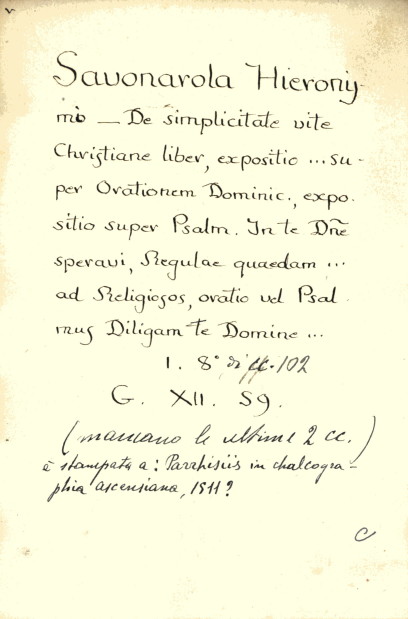 Savonarola Hierony-
mi — De simplicitate vite
Christiane liber, expositio ... su-
per Orationem Dominic., expo-
sitio super Psalm. In te Dñe
speravi, Regulae quaedam ...
ad Religiosos, oratio vel Psal
mus Diligam te Domine ...
1. 8° di cc. 102
G. XII. 59.
(mancano le ultime 2 cc.)
è stampata a: Parrhisiis in chalcogra-
phia ascensiana, 1511?
C